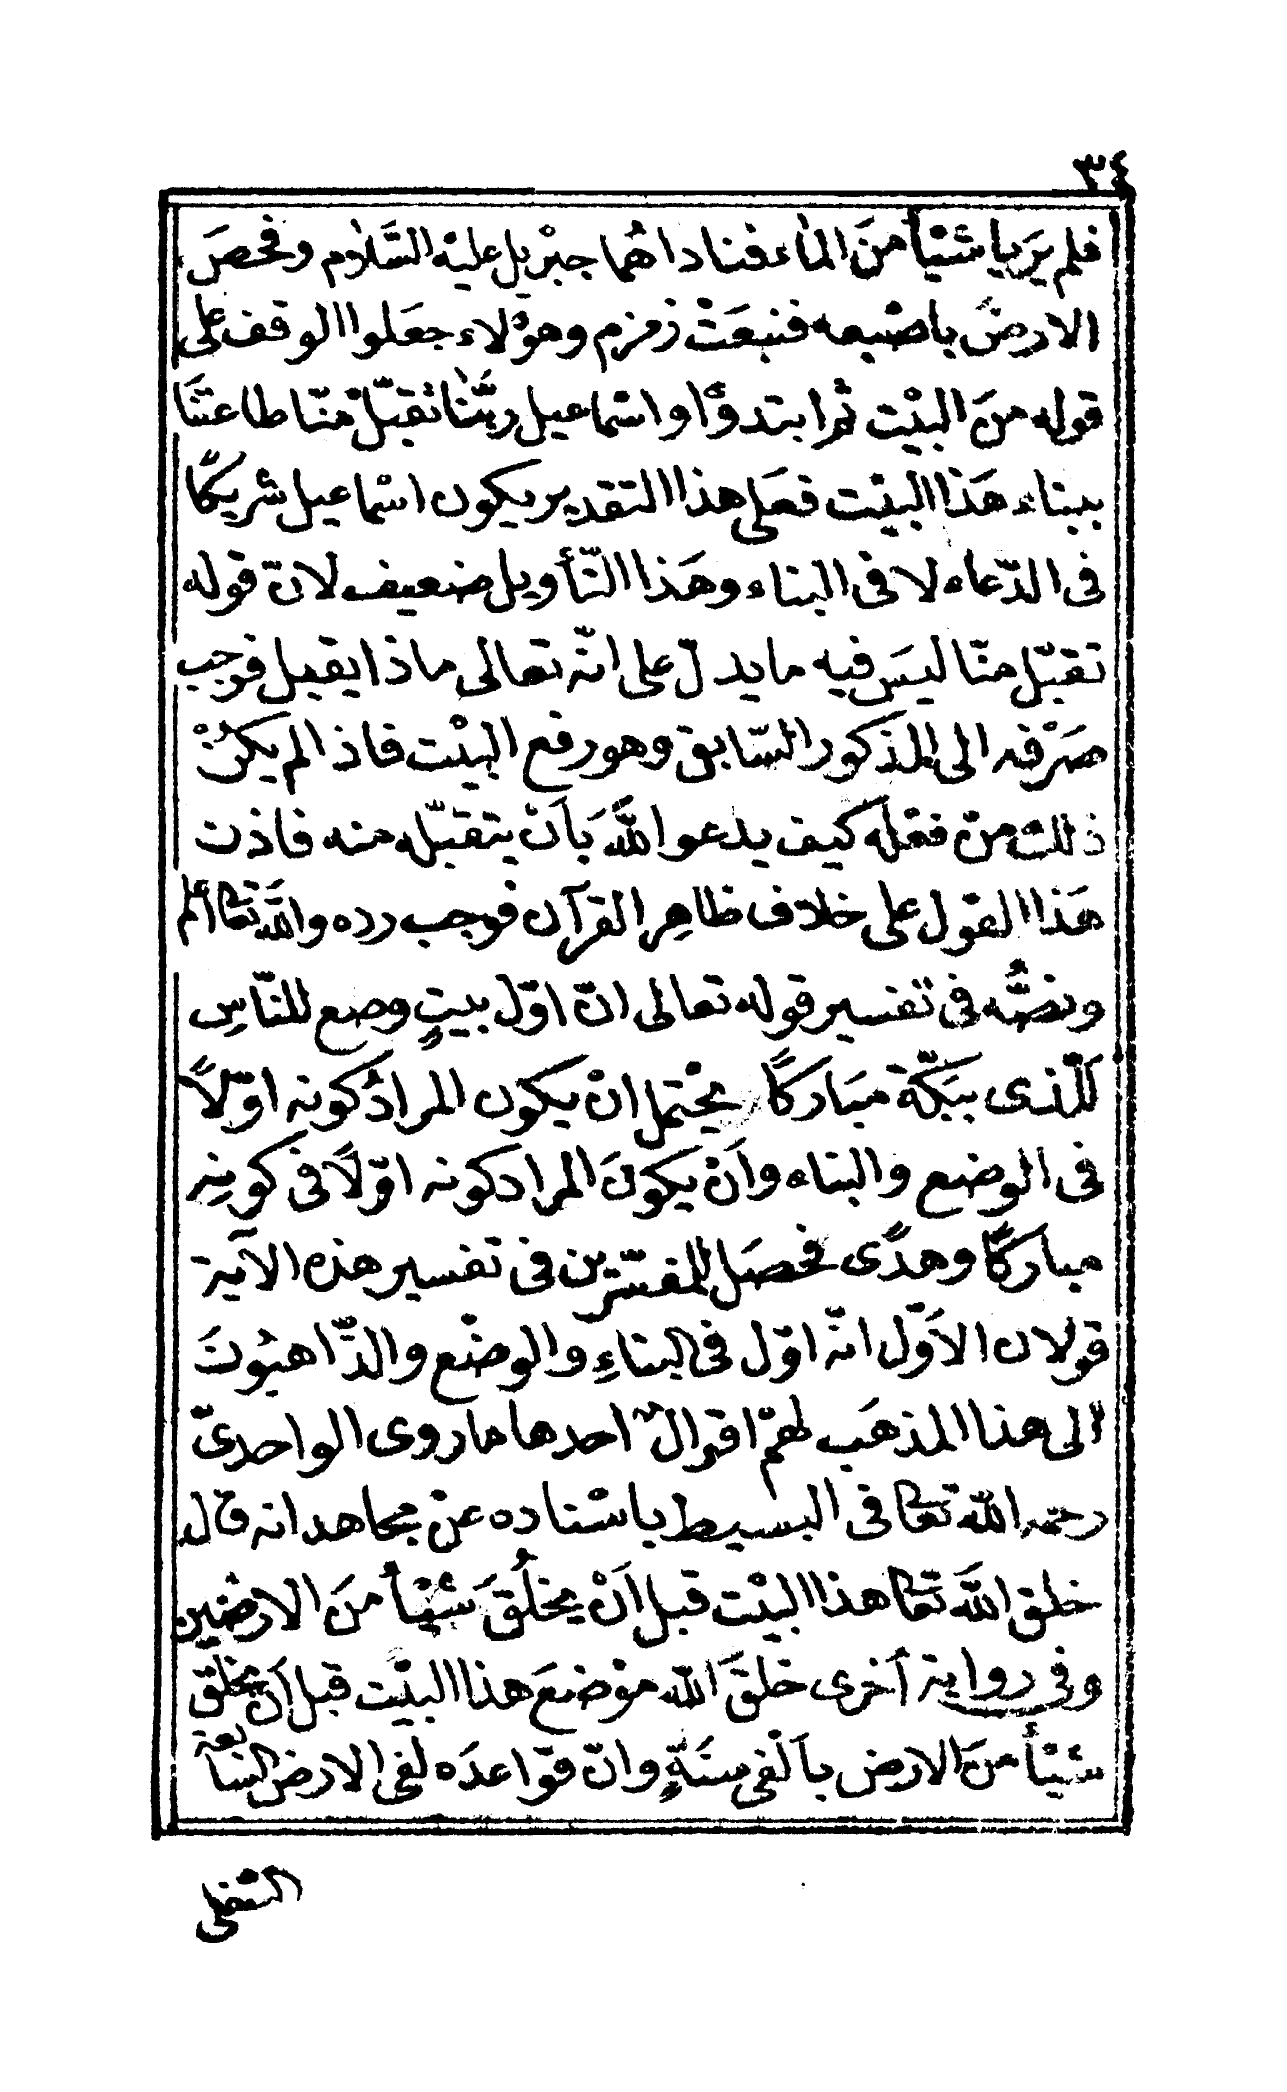 ٣٤
فلم يَرَيا شَيْأً منَ الماء فناداهُما جبْريل عليْه السَّلام وفحصَ
الارضَ باصْبعه فنبعَتْ زمزم وهؤلاء جعَلوا الوقف على
قوله منَ البيْت ثم ابتدؤا واسْماعيل ربَّنا تقبّلْ منّا طاعتنَا
ببناء هَذا البيْت فعَلى هذا التقدير يكون اسْماعيل شريكًا
فى الدّعاء لا فى البناء وهَذا التّأويل ضعيف لانّ قوله
تقبّل منّا ليسَ فيه ما يدلّ على انّه تعالى ماذا يقبل فوجب
صَرْفه الى المذكور السّابق وهو رفع البيْت فاذا لم يكنْ
ذلك منْ فعْله كيف يدعو اللهَ بَانْ يتقبّله منه فاذن
هَذا القول على خلاف ظاهِر القرآن فوجب رده واللهَ تعا اعلم
ونصُّه فى تفسير قوله تعالى انّ اوّل بيتٍ وضع للنّاسِ
لَلّذى ببَكّة مبَاركًا يحْتمل انْ يكون المرادُ كونه اوّلًا
فى الوضع والبناء وانْ يكونَ المراد كونه اوّلًا فى كونِه
مباركًا وهدًى فحصَل للمفسّرين فى تفسير هذه الآية
قولان الاَوّل انّه اوّل فى البناءِ والوضْع والذّاهبُونَ
الى هذا المذهَب لهمْ اقوالٌ احدها ما روى الواحدىّ
رحمه اللّه تعا فى البسيط باسْناده عنْ مجاهد انه قال
خلق اللّهَ تعا هذا البيْت قبل اَنْ يخلُقَ شيْأً منَ الارضين
وفى رواية أخرى خلقَ اللّه موْضعَ هذا البيْت قبل اَنْ يخلق
شَيْأً منَ الارض بالْفى سنَةٍ وانّ قوَاعدَه لفى الارض السّابعة
السّفلى